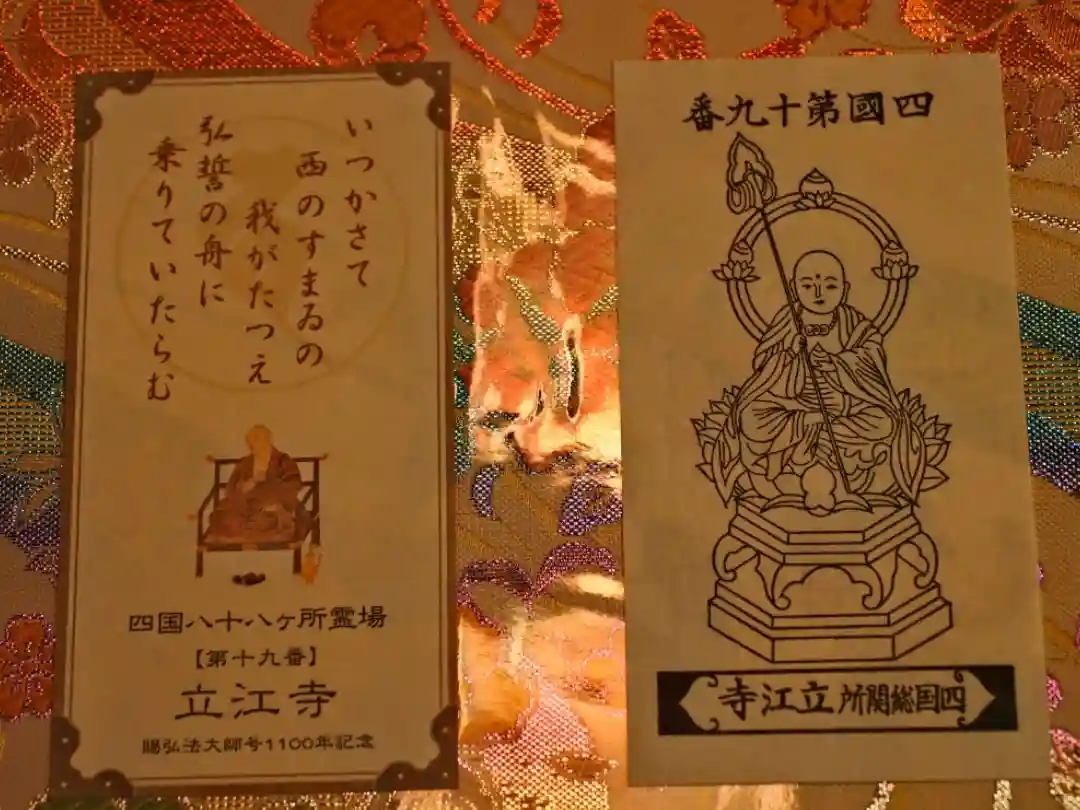 いつかさて
西のすまゐの
我がたつえ
弘誓の舟に
乗りていたらむ
四国八十八ヶ所霊場
【第十九番】
立江寺
賜弘法大師号1100年記念
番九十第國四
寺江立所関総国四